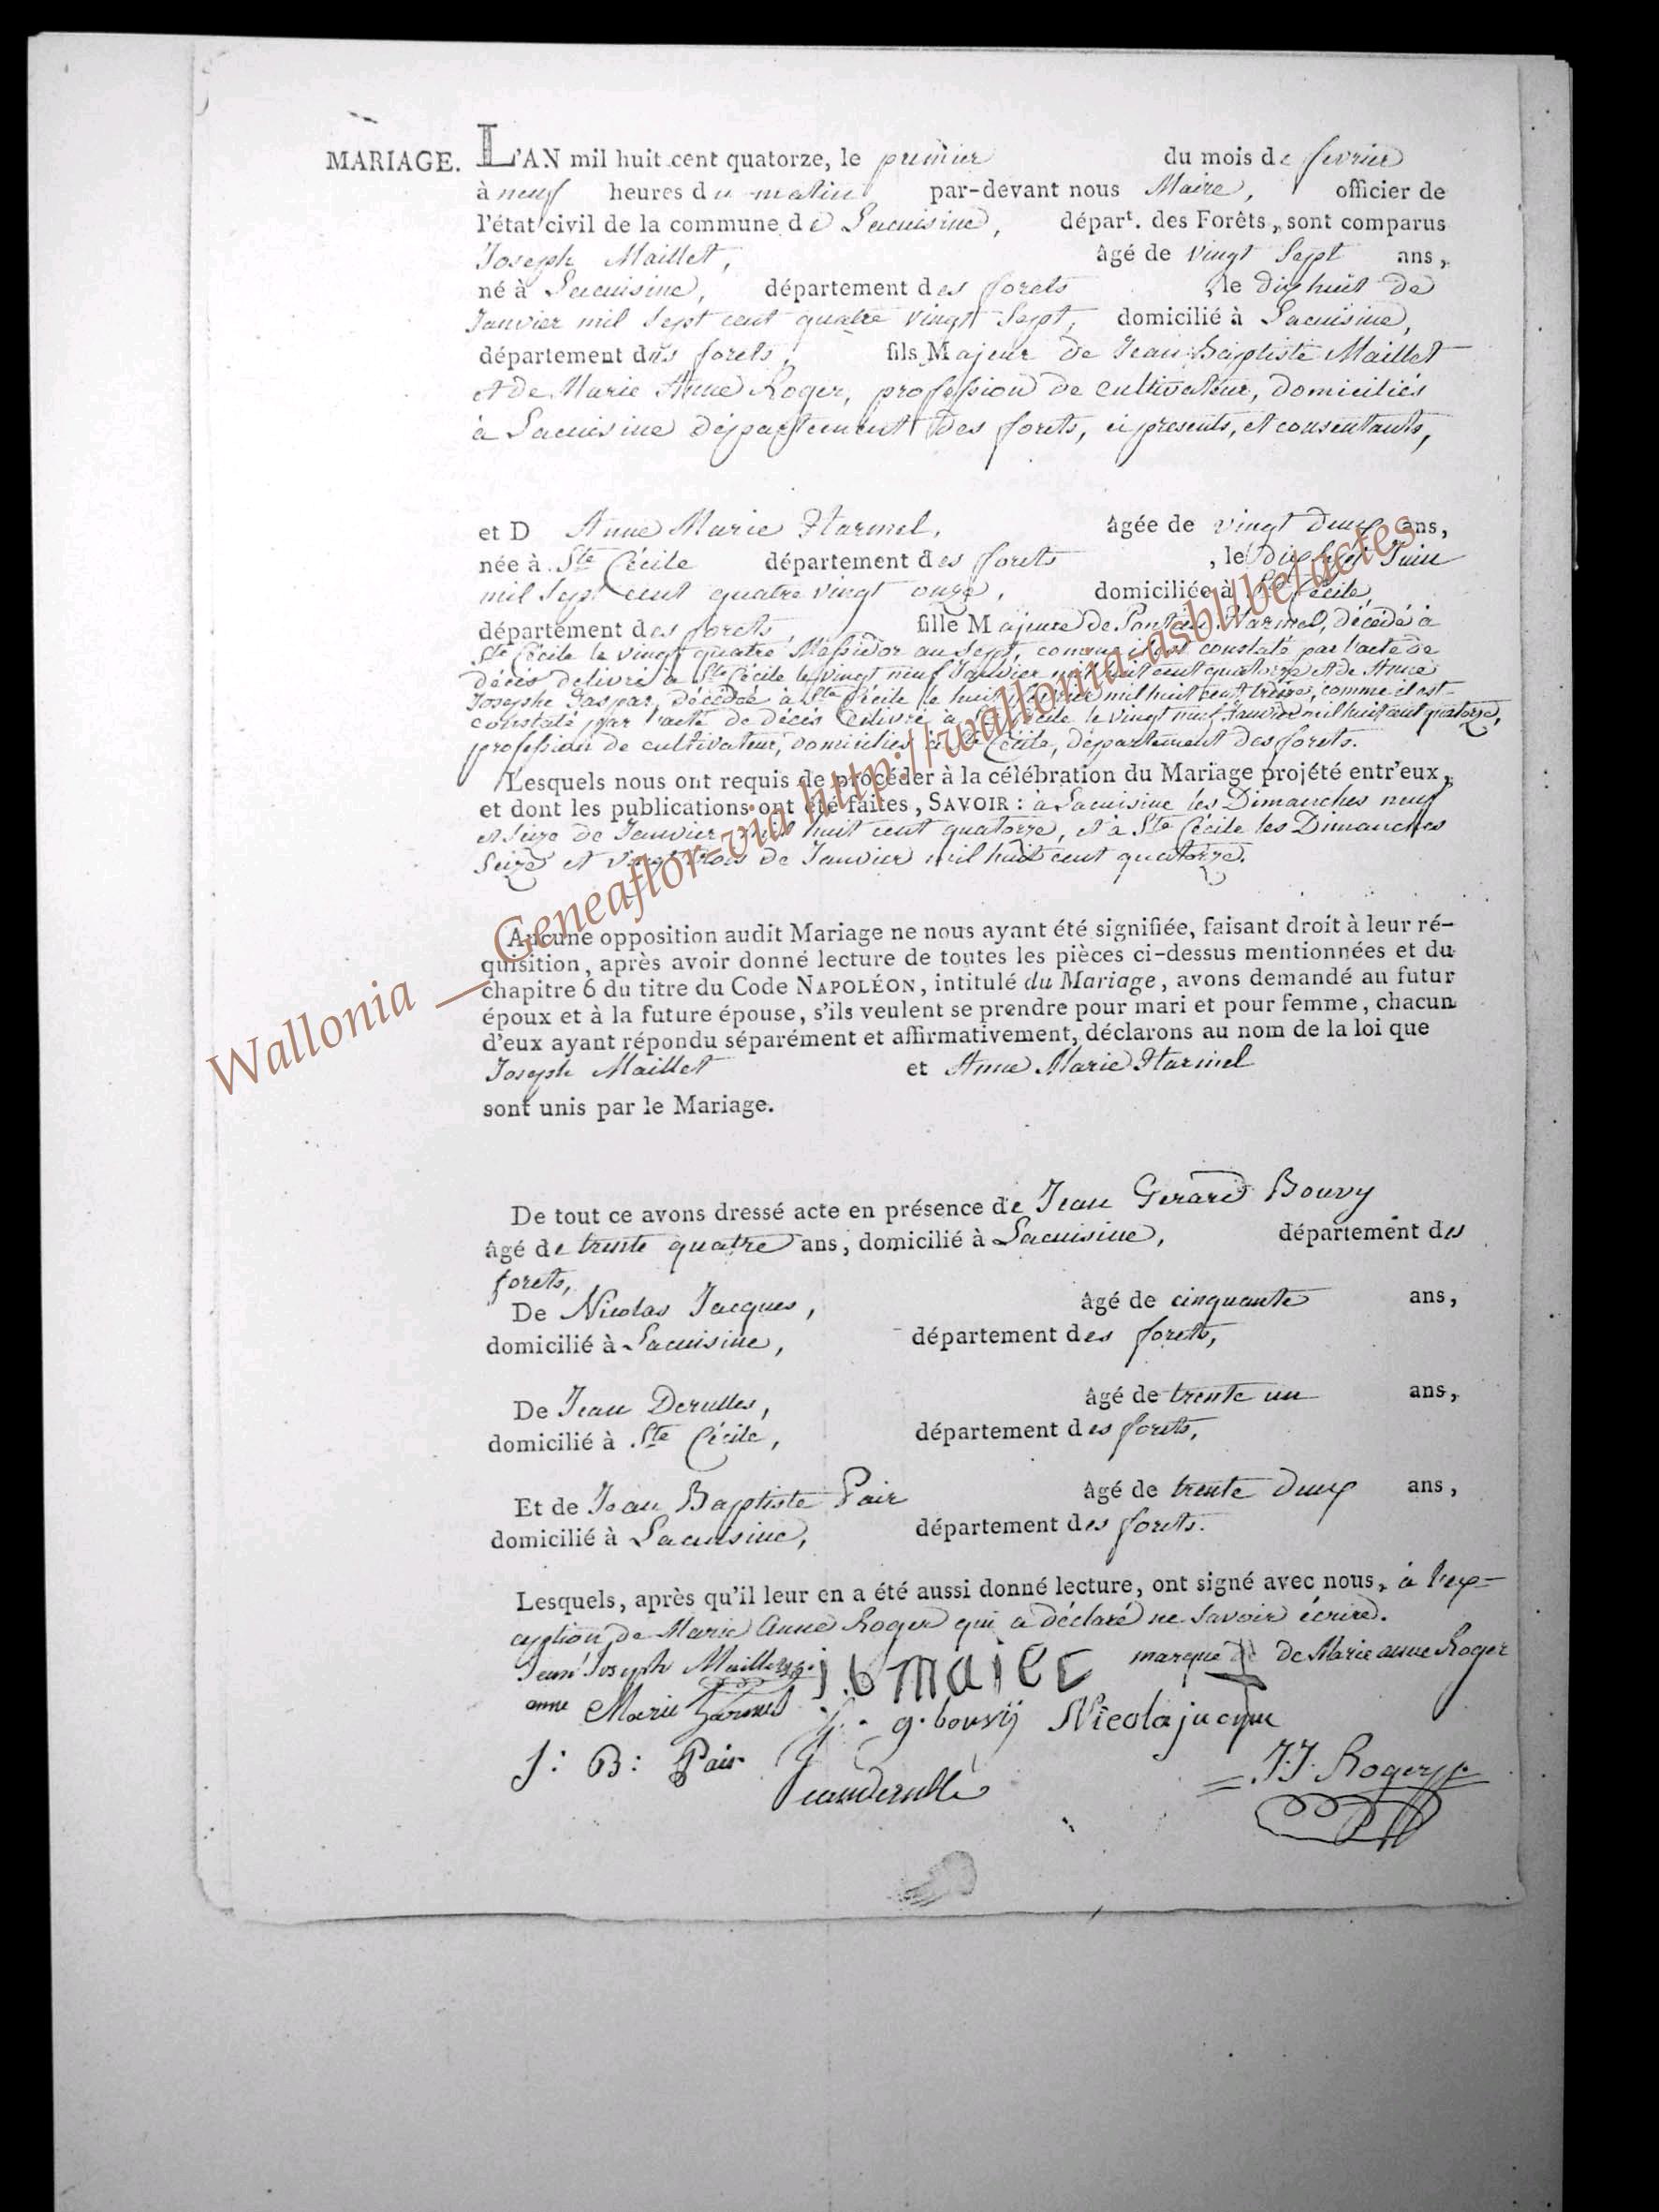 MARIAGE. L'AN mil huit cent quatorze, le premier du mois de fevrier
à neuf heures du matin par-devant nous Maire, officier de
l'état civil de la commune de Lacuisine, départ. des Forêts, sont comparus
Joseph Maillet, âgé de vingt Sept ans,
né à Lacuisine, département des forets, le dix huit de
Janvier mil Sept cent quatre vingt Sept, domicilié à Lacuisine,
département des forets, fils Majeur de Jean Baptiste Maillet
et de Marie Anne Roger, profession de cultivateur, domiciliés
à Lacuisine département des forets, ci presents, et consentants,
et D Anne Marie Harmel, âgée de vingt deux ans,
née à Ste Cécile département des forets, le Dix huit Juin
mil Sept cent quatre vingt onze, domiciliée à Ste Cécile,
département des forets, fille Majeure de Harmel, décédé à
Ste Cécile le vingt quatre Messidor an Sept, comme il est constaté par l'acte de
décès delivré à Ste Cécile le vingt neuf Janvier mil huit cent quatorze et de Anne
Josephe Gaspar, décédée à Ste Cécile le huit mil huit cent treize, comme il est
constaté par l'acte de décès délivré à Ste Cécile le vingt neuf Janvier mil huit cent quatorze,
profession de cultivateur, domiciliés à Ste Cécile, département des forets.
Lesquels nous ont requis de procéder à la célébration du Mariage projété entr'eux,
et dont les publications ont été faites, SAVOIR : à Lacuisine les Dimanches neuf
et Seize de Janvier mil huit cent quatorze, et à Ste Cécile les Dimanches
Seize et vingt trois de Janvier mil huit cent quatorze.
Aucune opposition audit Mariage ne nous ayant été signifiée, faisant droit à leur ré-
quisition, après avoir donné lecture de toutes les pièces ci-dessus mentionnées et du
chapitre 6 du titre du Code NAPOLÉON, intitulé du Mariage, avons demandé au futur
époux et à la future épouse, s'ils veulent se prendre pour mari et pour femme, chacun
d'eux ayant répondu séparément et affirmativement, déclarons au nom de la loi que
Joseph Maillet et Anne Marie Harmel
sont unis par le Mariage.
De tout ce avons dressé acte en présence de Jean Gerard Bouvy
âgé de trente quatre ans, domicilié à Lacuisine, département des
forets,
De Nicolas Jacques, âgé de cinquante ans,
domicilié à Lacuisine, département des forets,
De Jean Derulles, âgé de trente un ans,
domicilié à Ste Cécile, département des forets,
Et de Jean Baptiste Pair âgé de trente deux ans,
domicilié à Lacuisine, département des forets.
Lesquels, après qu'il leur en a été aussi donné lecture, ont signé avec nous, à l'ex-
ception de Marie Anne Roger qui a déclaré ne Savoir écrire.
Jean Joseph Maillet j b maiet marque de Marie anne Roger
anne Marie harmel g. bouvÿ Nicola jacque
J: B: Pair Jean derulle J.J. Roger
Wallonia __ Geneaflor-via http://wallonia-asbl/be/actes